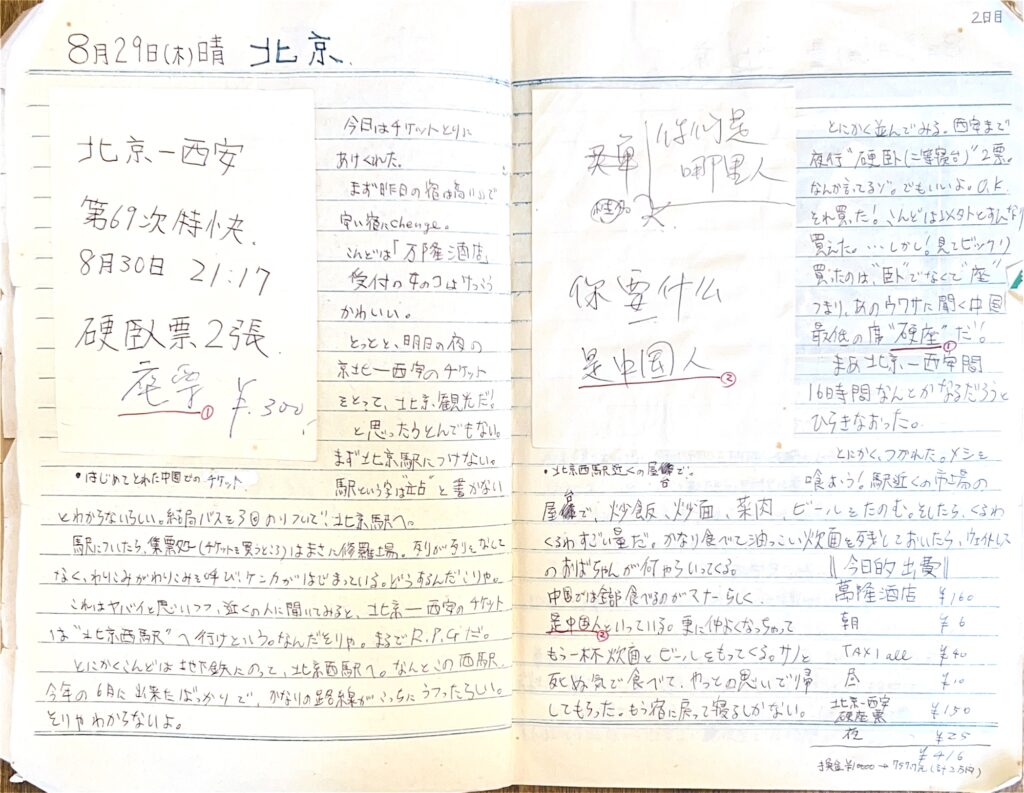 8月29日(木)晴 北京.
北京－西安
第69次 特快.
8月30日 21:17
硬臥票2張.
座票 ① ¥.300.-
•はじめてとれた中国でのチケット
今日はチケットとりに
あけくれた。
まず昨日の宿は高いので
安い宿にchenge。
こんどは「万隆酒店」
受付の女のコはけっこう
かわいい。
とっとと、明日の夜の
京北－西安のチケット
をとって、北京観光だ!
と思ったらとんでもない。
まず北京駅につけない。
駅という字は"站"と書かない
とわからないらしい。結局バスを3回のりついで、北京駅へ。
駅についたら、集票処(チケットを買うところ)はまさに修羅上場。列が列をなして
なく、わりこみがわりこみを呼び、ケンカがはじまっている。どうするんだこりゃ。
これはヤバイと思いつつ、近くの人に聞いてみると、北京－西安のチケット
は"北京西駅"へ行けという。なんだそりゃ。まるでR.P.Gだ。
とにかくこんどは地下鉄にのって、北京西駅へ。なんとこの西駅
今年の6月に出来たばっかりで、かなりの路線がこっちにうつったらしい。
そりゃわからないよ。
2日目
你们是
哪里人
你要什么
是中国人 ②
•北京西駅近くの屋台で。
とにかく並んでみる。西安まで
夜行"硬卧(二等寝台)"2票。
なんか言ってるゾ。でもいいよ。O.K.
それ買った! こんどはイメタトとすんなり
買えた。…しかし!見てビックリ
買ったのは、"卧"でなくて"座"
つまり、あのウワサに聞く中国
最低の席"硬座"だ! ①
まあ北京－西安間
16時間なんとかなるだろうと
ひらきなおった。
とにかく、つかれた。メシを
喰おう! 駅近くの市場の
屋台で、炒飯、炒面、菜肉、ビールをたのむ。そしたら、くるわ
くるわすごい量だ。かなり食べて油っこい炒面を残しておいたら、ウェイトレス
のおばちゃんが何やらいってくる。
中国では全部食べるのがマナーらしく、
是中国人といっている。更に仲よくなっちゃって ②
もう一杯炒面とビールをもってくる。サノと
死ぬ気で食べて、やっとの思いで帰
してもらった。もう宿に戻って寝るしかない。
‖今日的出費‖
萬隆酒店 ¥160
朝 ¥6
TAXI all ¥40
昼 ¥10
北京－西安
硬座票 ¥150
夜 ¥25
¥416
換金¥10000→757.7元(計2万円)